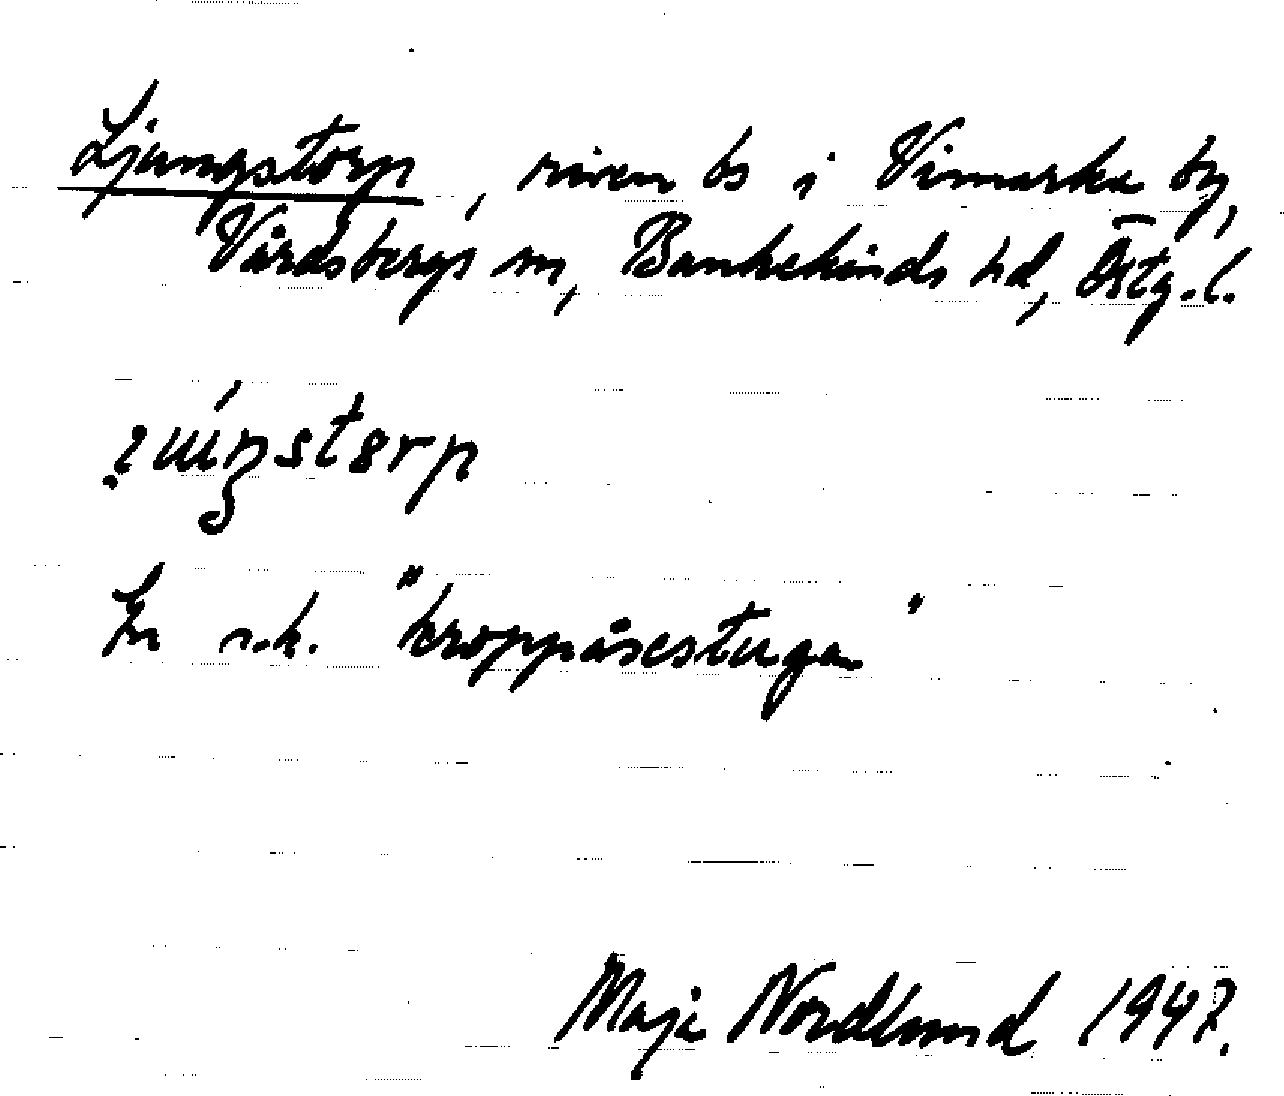 Ljungstorp, riven bs i Vimarka by,
Vårdsbergs sn, Bankekinds hd, Östg.l.
En s.k. "kroppåsestuga"
Maja Nordlund 1947.